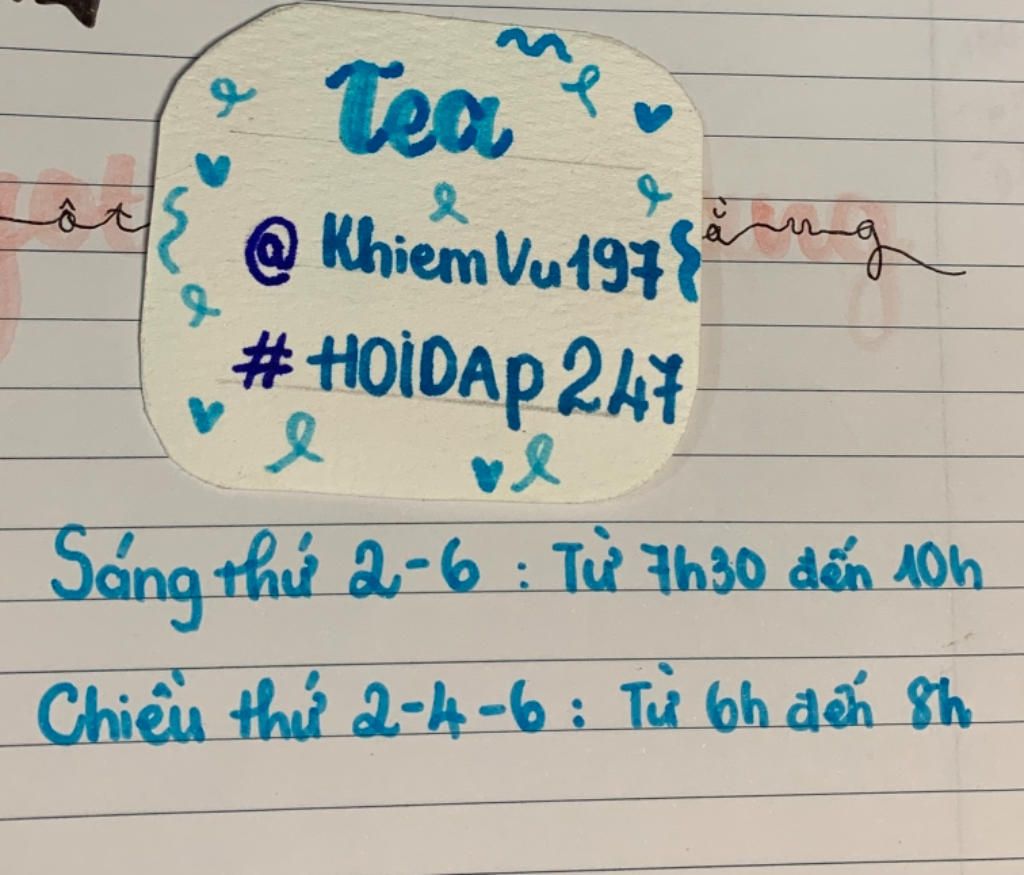 Tea
@KhiemVu197
ôt ằng
#HOiDAp247
Sáng thứ 2-6 : Từ 7h30 đến 10h
Chiều thứ 2-4-6 : Từ 6h đến 8h